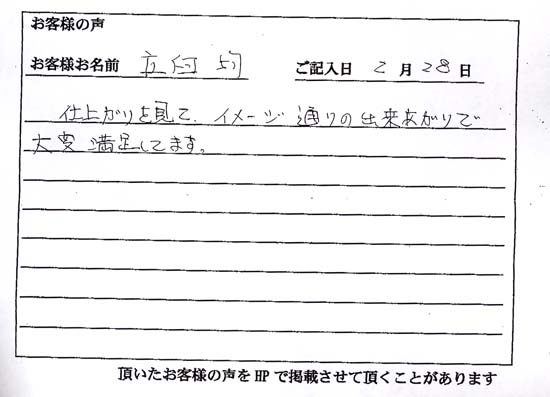 お客様の声
お客様お名前 ご記入日 2月28日
仕上がりを見て、イメージ通りの出来あがりで
大変満足してます。
頂いたお客様の声をHPで掲載させて頂くことがあります